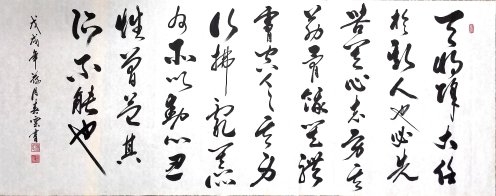 天將降大任
於斯人也必先
苦其心志勞其
筋骨餓其體
膚空乏其身
行拂亂其所
為所以動心忍
性曾益其
所不能也
戊戌年月雲書